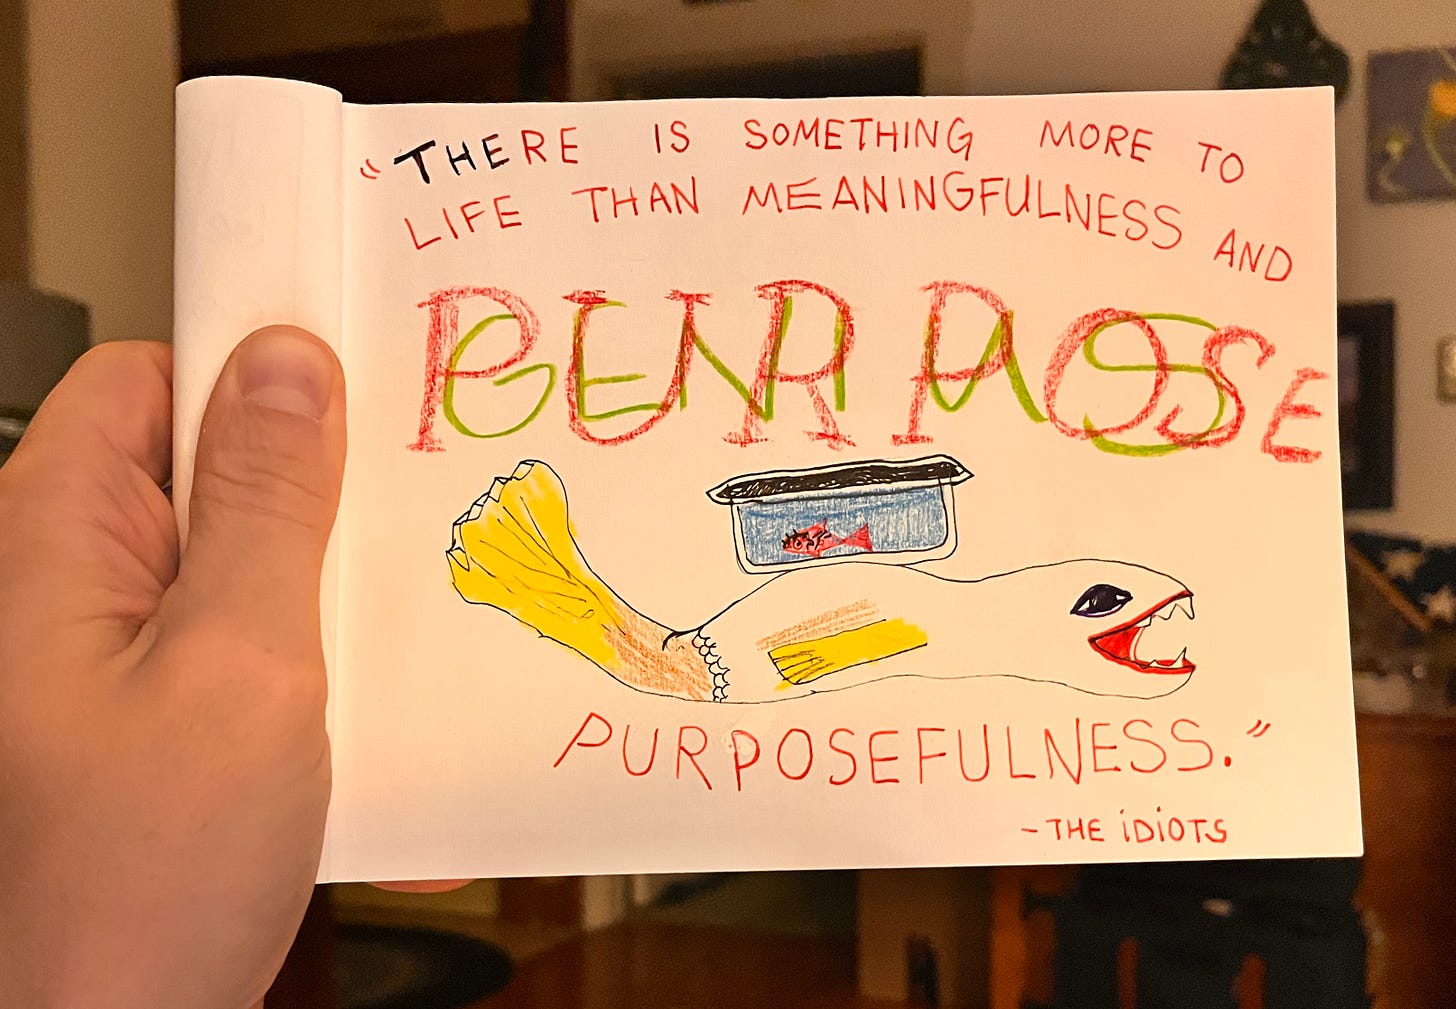 "THERE IS SOMETHING MORE TO
LIFE THAN MEANINGFULNESS AND
PURPOSE
GENIUS
PURPOSEFULNESS."
- THE iDiOTS